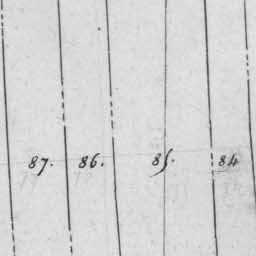 87. 86. 85. 84